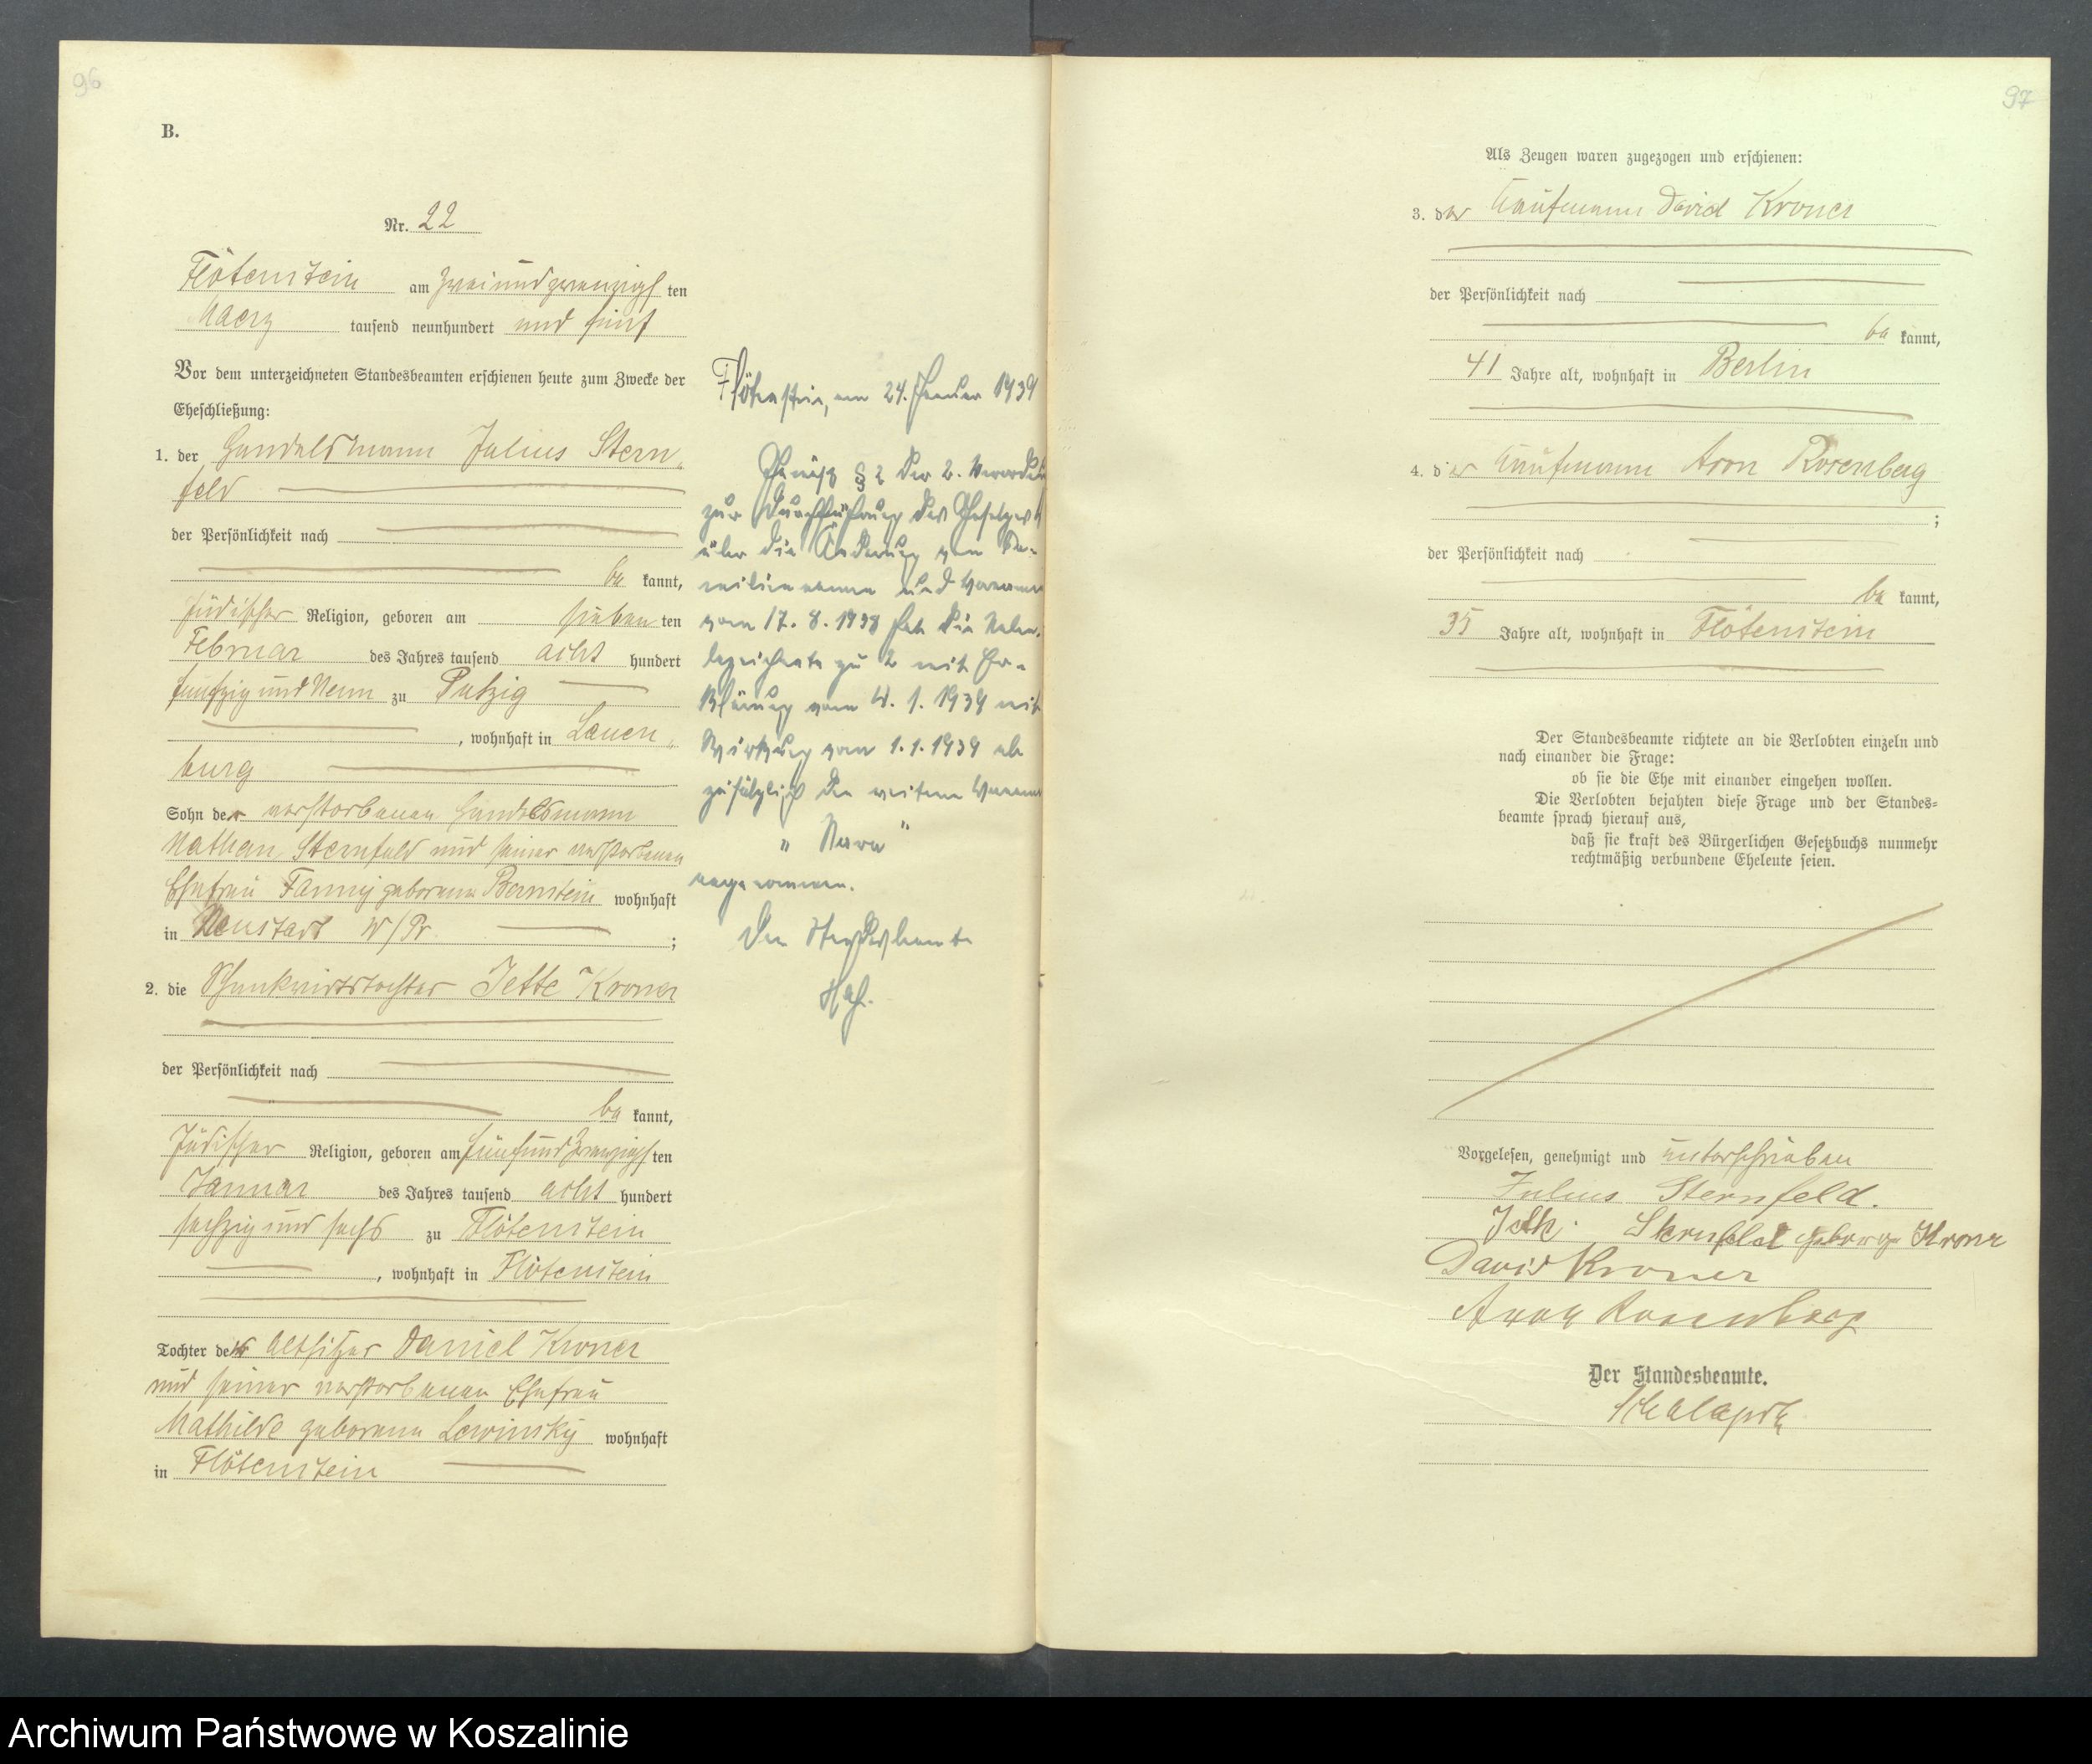 96
B.
Nr. 22
Flötenstein am zweiundzwanzigsten
Maerz tausend neunhundert und fünf
Vor dem unterzeichneten Standesbeamten erschienen heute zum Zwecke der
Eheschließung:
1. der Handelsmann Julius Stern-
feld
der Persönlichkeit nach
be kannt,
jüdischer Religion, geboren am sieben ten
Februar des Jahres tausend acht hundert
fünfzig und Neun zu Putzig
, wohnhaft in Lauen-
burg
Sohn der verstorbenen Handelsmann
Nathan Sternfeld und seiner verstorbenen
Ehefrau Fanny geborene Bernstein wohnhaft
in Neustadt W/Pr ;
2. die Schankwirtstochter Jette Kroner
der Persönlichkeit nach
be kannt,
Jüdischer Religion, geboren am fünfundzwanzigsten
Januar des Jahres tausend acht hundert
sechzig und sechs zu Flötenstein
, wohnhaft in Flötenstein
Tochter des Altsitzer Daniel Kroner
und seiner verstorbenen Ehefrau
Mathilde geborene Lewinsky wohnhaft
in Flötenstein
Flötenstein, am 24. Januar 1939
Gemäß § 2 der 2. Verordn
zur Durchführung des Gesetzes
über die Änderung von Fa-
miliennamen und Vornamen
vom 17. 8. 1938 hat die Neben-
bezeichnete zu 2 mit Er-
klärung vom 4. 1. 1939 mit
Wirkung vom 1. 1. 1939 ab
zusätzlich den weiteren Vornamen
„ Sara "
angenommen.
Der Standesbeamte
97
Als Zeugen waren zugezogen und erschienen:
3. der Kaufmann David Kroner
der Persönlichkeit nach
be kannt,
41 Jahre alt, wohnhaft in Berlin
4. der Kaufmann Aron Rosenberg
;
der Persönlichkeit nach
be kannt,
35 Jahre alt, wohnhaft in Flötenstein
Der Standesbeamte richtete an die Verlobten einzeln und
nach einander die Frage:
ob sie die Ehe mit einander eingehen wollen.
Die Verlobten bejahten diese Frage und der Standes=
beamte sprach hierauf aus,
daß sie kraft des Bürgerlichen Gesetzbuchs nunmehr
rechtmäßig verbundene Eheleute seien.
Vorgelesen, genehmigt und unterschrieben
Julius Sternfeld.
Jette Sternfeld geborene Kroner
David Kroner
Aron Rosenberg
Der Standesbeamte.
Archiwum Państwowe w Koszalinie